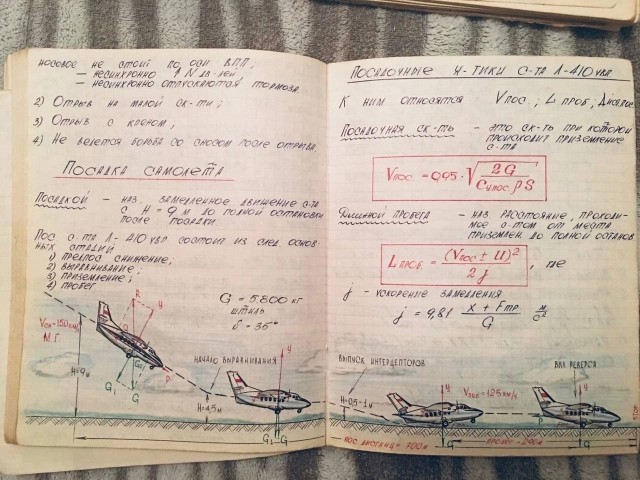 носовое не стоит по оси ВПП;
— несинхронно ↑ N дв-лей
— несинхронно отпускаются тормоза.
2) Отрыв на малой ск-ти;
3) Отрыв с креном;
4) Не ведется борьба со сносом после отрыва.
Посадка самолета
Посадкой — наз. замедленное движение с-та
с H = 9 м до полной остановки
после посадки.
Пос. с-та Л-410 увп состоит из след. основ-
ных стадий
1) предпос снижение;
2) выравнивание;
3) приземление;
4) пробег
G = 5.800 кг
штиль
δ = 35°
Vсн=150км/ч
М.Г
H=9м
R
Y
G1
G
P
начало выравнивания
H=4,5м
Y
G1 G
Посадочные х-тики с-та Л-410 увп.
К ним относятся Vпос., L проб.,
Посадочная ск-ть — это ск-ть при которой
происходит приземление
с-та
Vпос = 0,95 · √2G / Cупос. ρ S
Длиной пробега — наз. расстояние, проходи-
мое с-том от места
приземлен. до полной останов
L проб. = (Vпос ± U)² / 2j , где
j - ускорение замедления
j = 9,81 X + Fтр / G м/с²
выпуск интерцепторов
H=0,5-1м
Y
G
Vпос=125км/ч
P
вкл реверса
Y
G
пос. дистанц = 700м
пробег - 200м